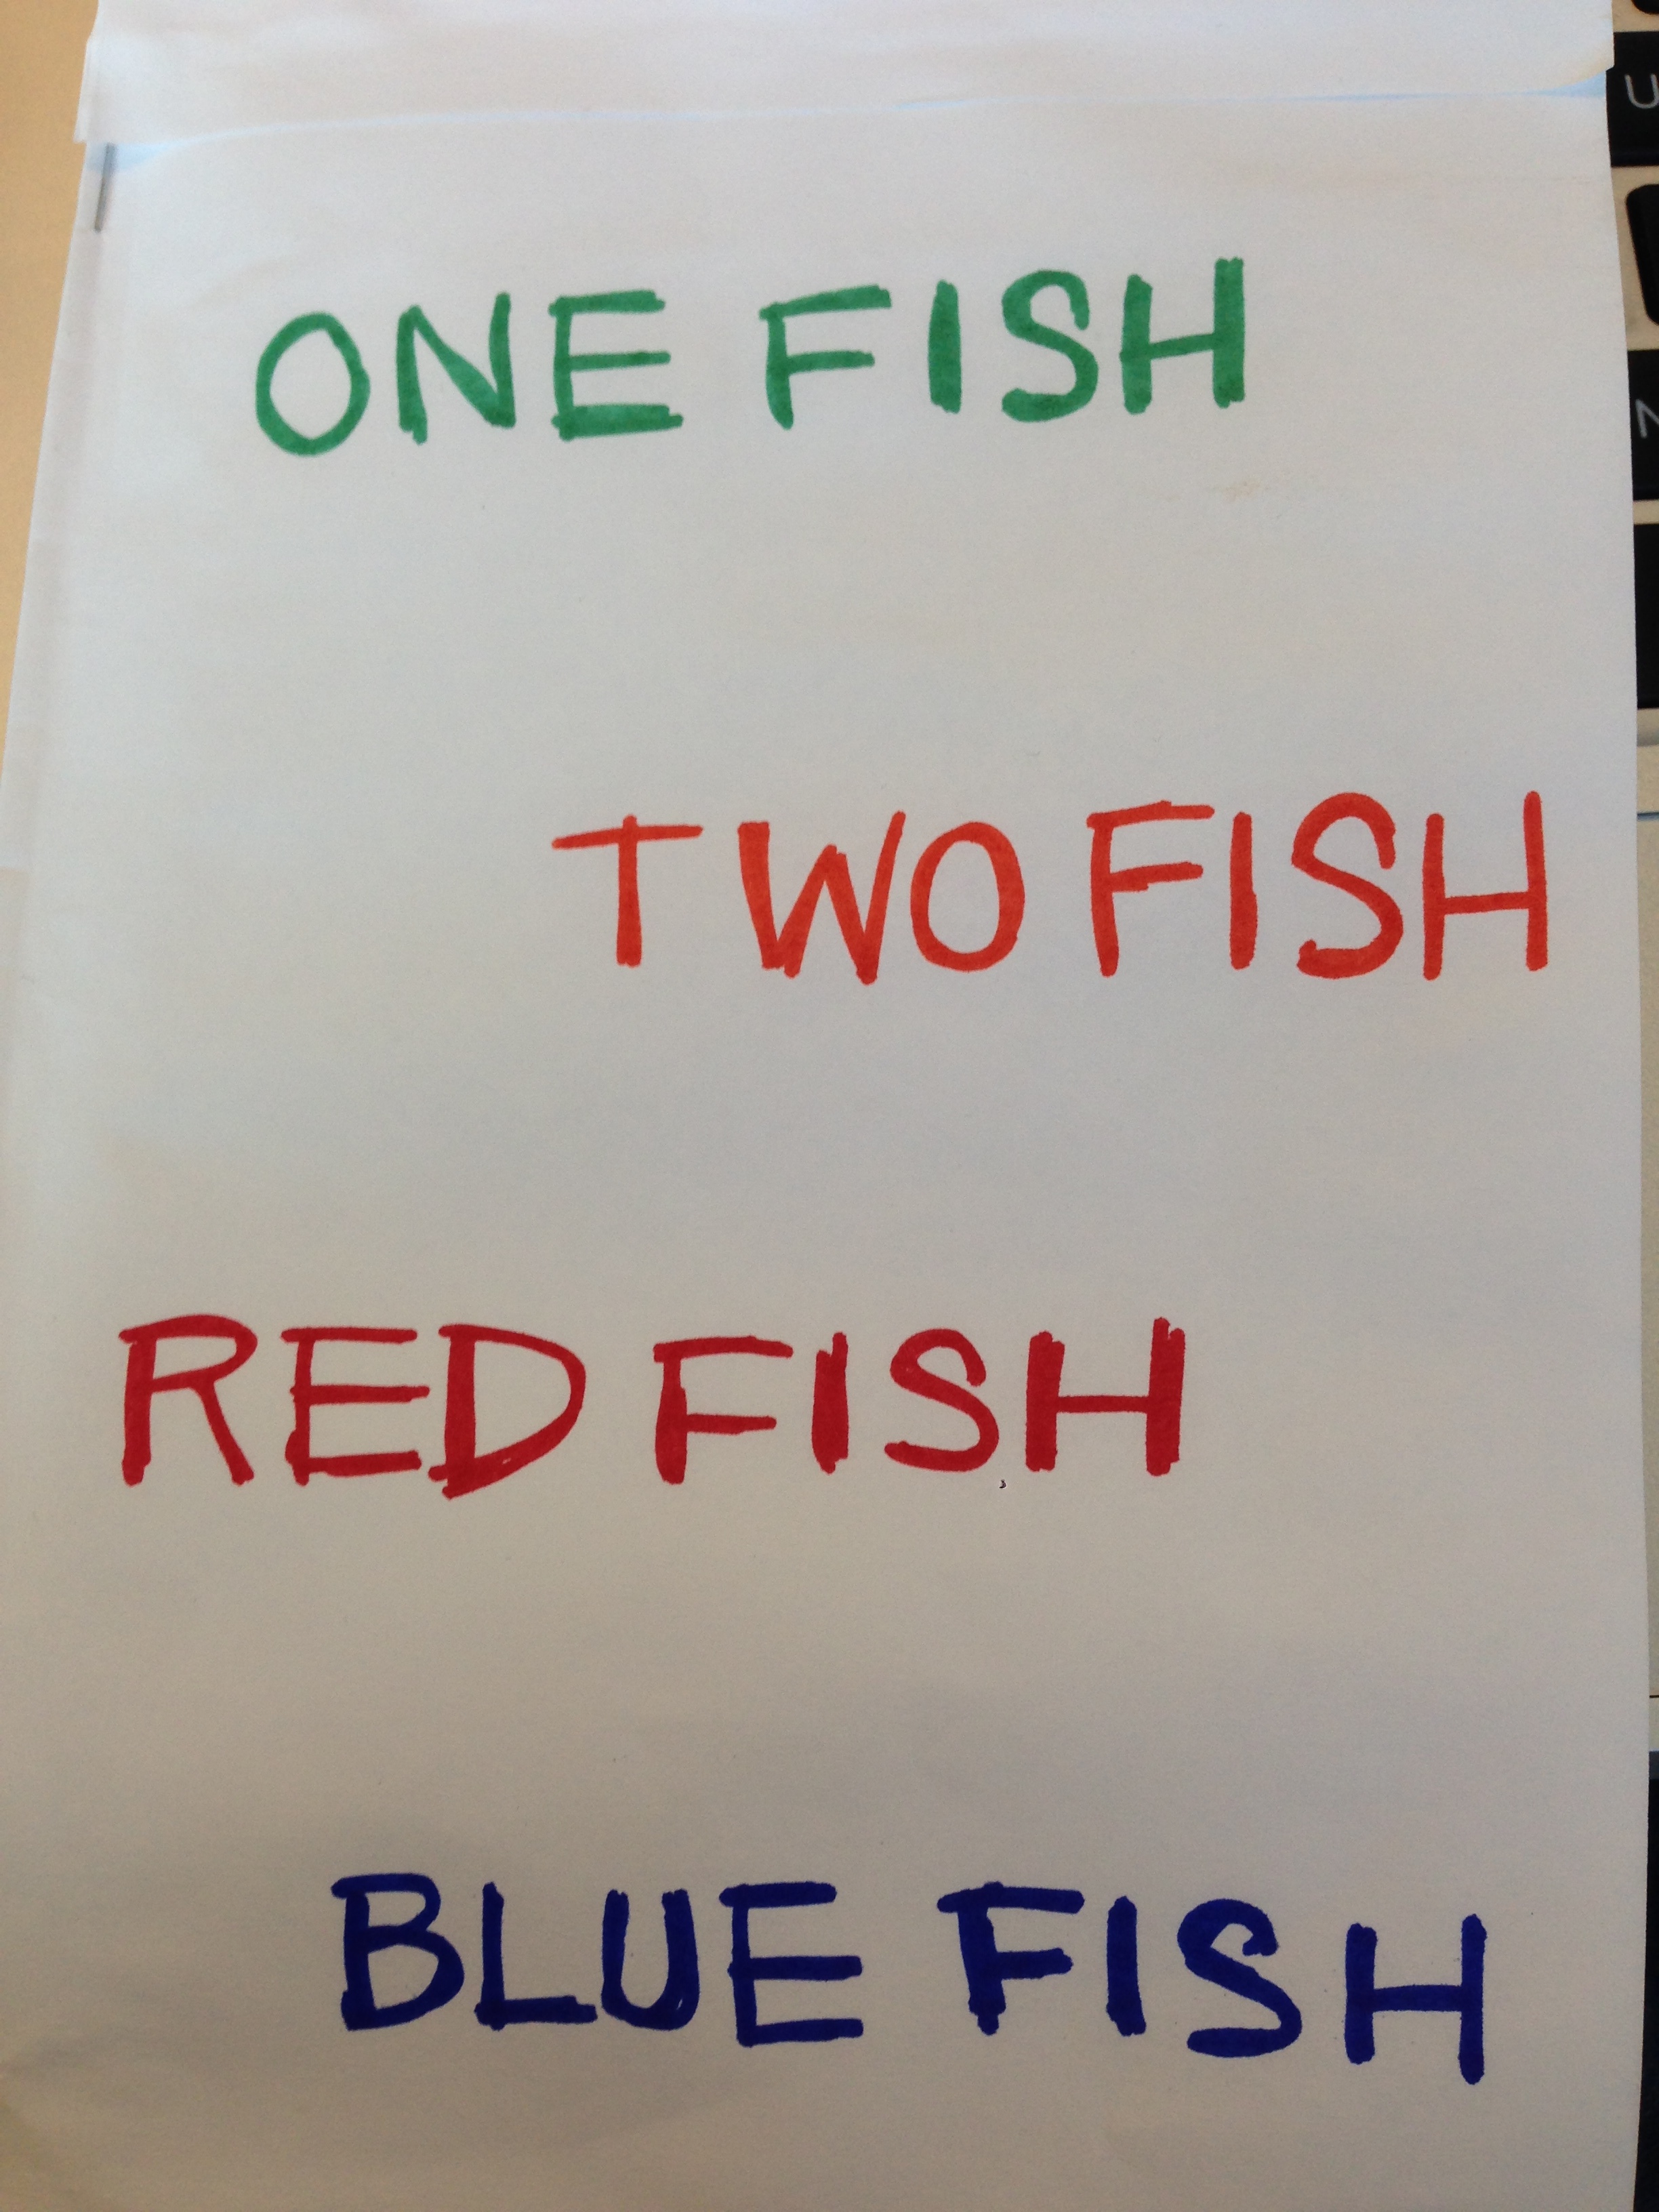 ONE FISH
TWO FISH
RED FISH
BLUE FISH
U